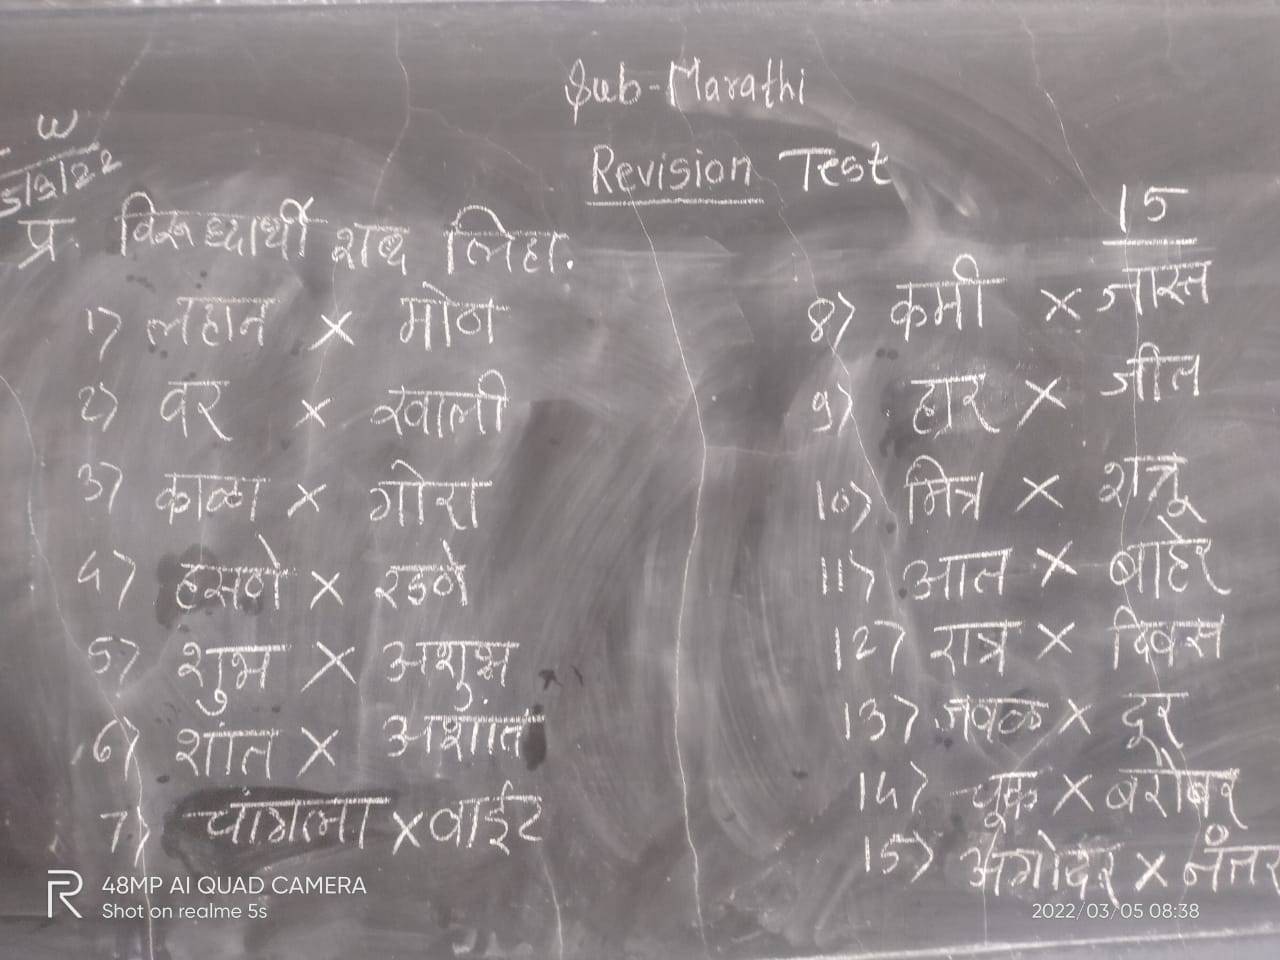 Sub-Marathi
W
5/3/22
Revision Test
15
प्र. विरूध्दार्थी शब्द लिहा.
1) लहान × मोठा
2) वर × खाली
3) काळा × गोरा
4) हसणे × रडणे
5) शुभ × अशुभ
6) शांत × अशांत
7) चांगला × वाईट
8) कमी × जास्त
9) हार × जीत
10) मित्र × शत्रू
11) आत × बाहेर
12) रात्र × दिवस
13) जवळ × दूर
14) चूक × बरोबर
15) अगोदर × नंतर
48MP AI QUAD CAMERA
Shot on realme 5s
2022/03/05 08:38